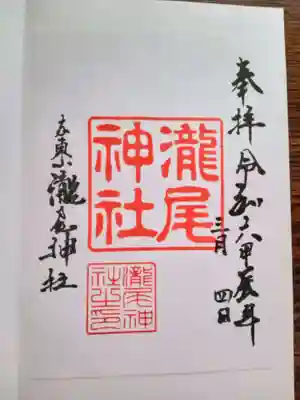 奉拝 令和六甲辰年
三月
四日
瀧尾
神社
瀧尾神
社之印
瀧尾神社